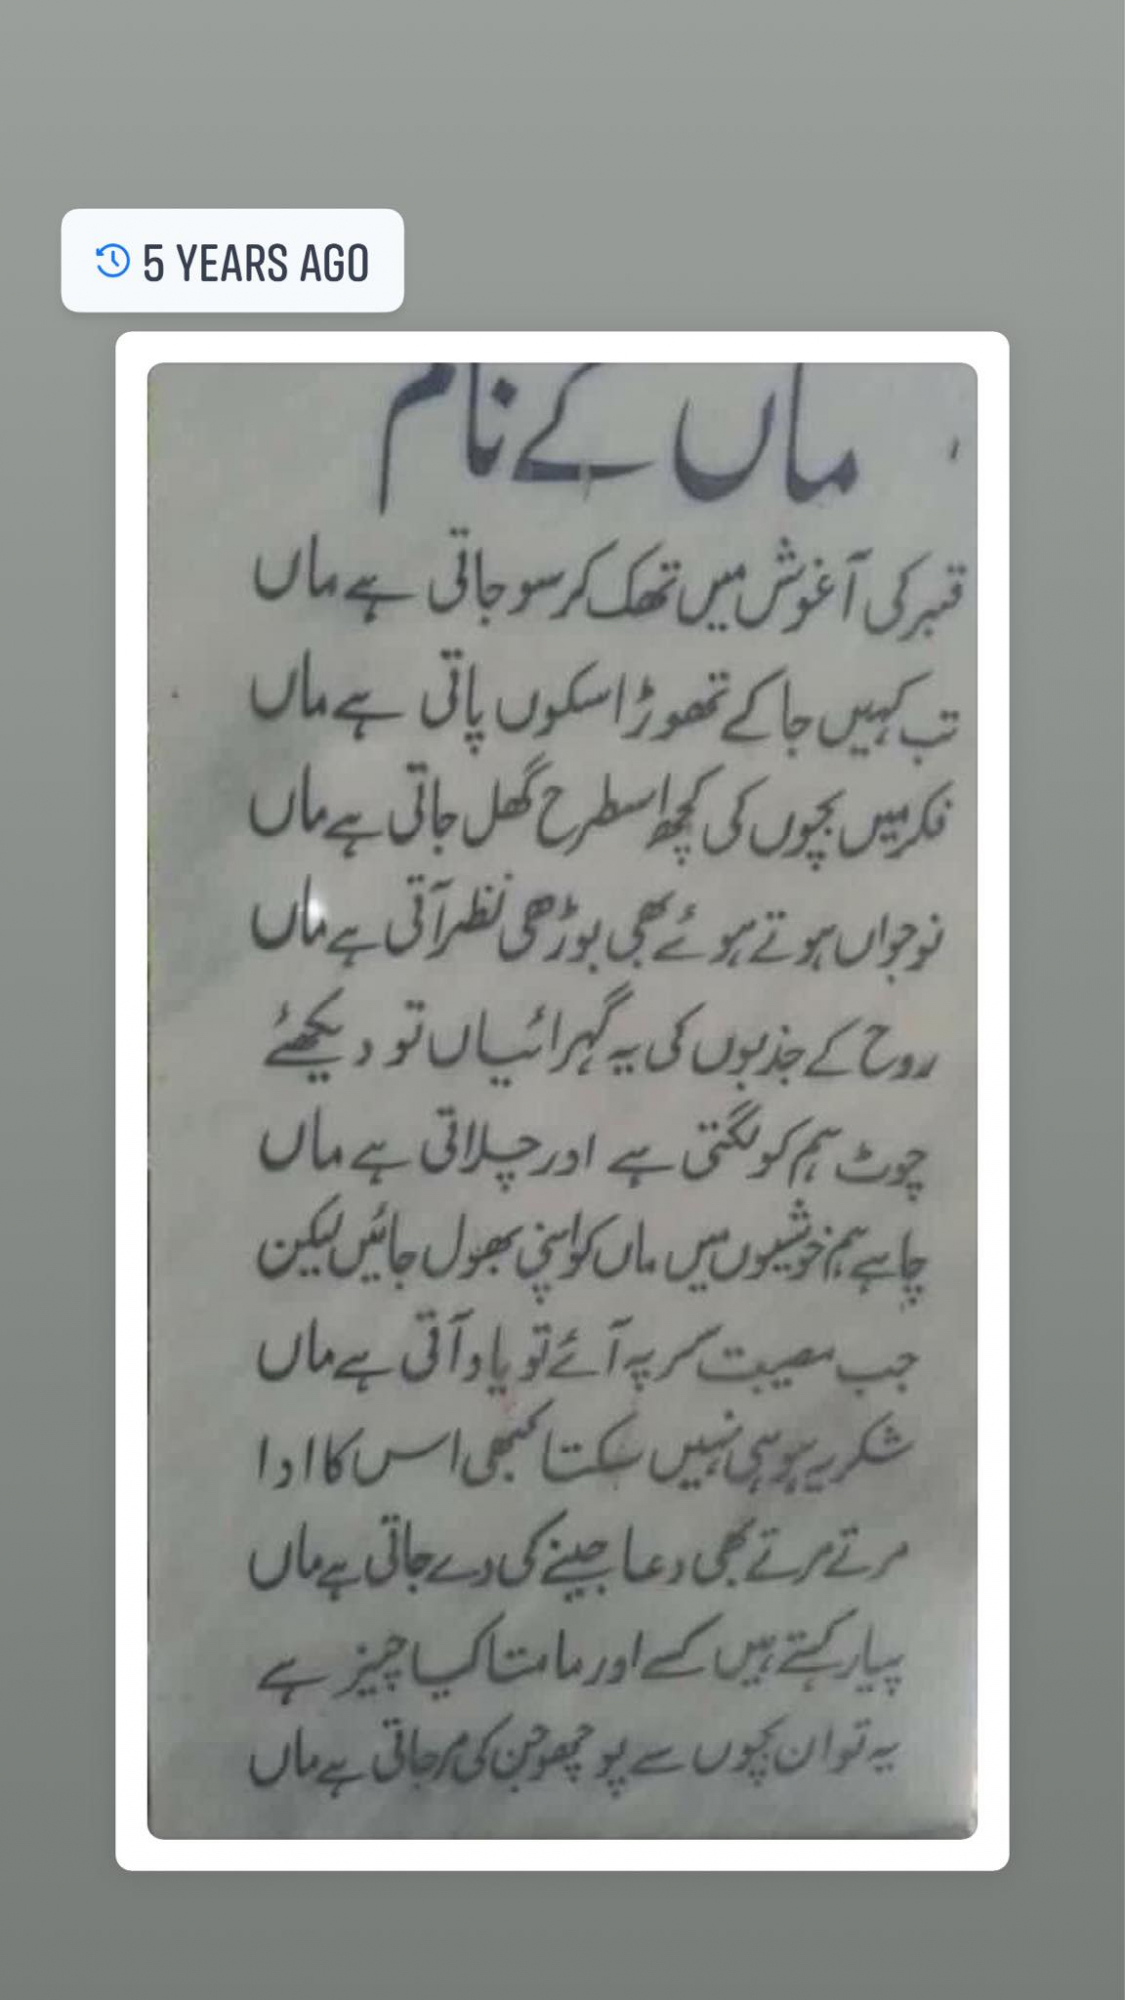 5 YEARS AGO
ماں کے نام
قبر کی آغوش میں تھک کر سو جاتی ہے ماں
تب کہیں جا کے تھوڑا سکوں پاتی ہے ماں
فکر میں بچوں کی کچھ اسطرح گھل جاتی ہے ماں
نوجواں ہوتے ہوئے بھی بوڑھی نظر آتی ہے ماں
روح کے جذبوں کی یہ گہرائیاں تو دیکھئے
چوٹ ہم کو لگتی ہے اور چلاتی ہے ماں
چاہے ہم خوشیوں میں ماں کو اپنی بھول جائیں لیکن
جب مصیبت سر پہ آئے تو یاد آتی ہے ماں
شکریہ ہو ہی نہیں سکتا کبھی اس کا ادا
مرتے مرتے بھی دعا جینے کی دے جاتی ہے ماں
پیار کہتے ہیں کسے اور مامتا کیا چیز ہے
یہ تو ان بچوں سے پوچھو جن کی مر جاتی ہے ماں